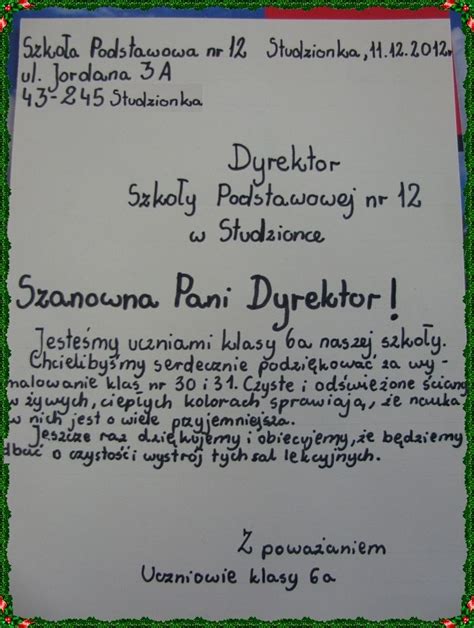 Szkoła Podstawowa nr 12 Studzionka, 11.12.2012r.
ul. Jordana 3A
43-245 Studzionka
Dyrektor
Szkoły Podstawowej nr 12
w Studzionce
Szanowna Pani Dyrektor!
Jesteśmy uczniami klasy 6a naszej szkoły.
Chcielibyśmy serdecznie podziękować za wy-
malowanie klas nr 30 i 31. Czyste i odświeżone ściany
w żywych, ciepłych kolorach sprawiają, że nauka
w nich jest o wiele przyjemniejsza.
Jeszcze raz dziękujemy i obiecujemy, że będziemy
dbać o czystość i wystrój tych sal lekcyjnych.
Z poważaniem
Uczniowie klasy 6a